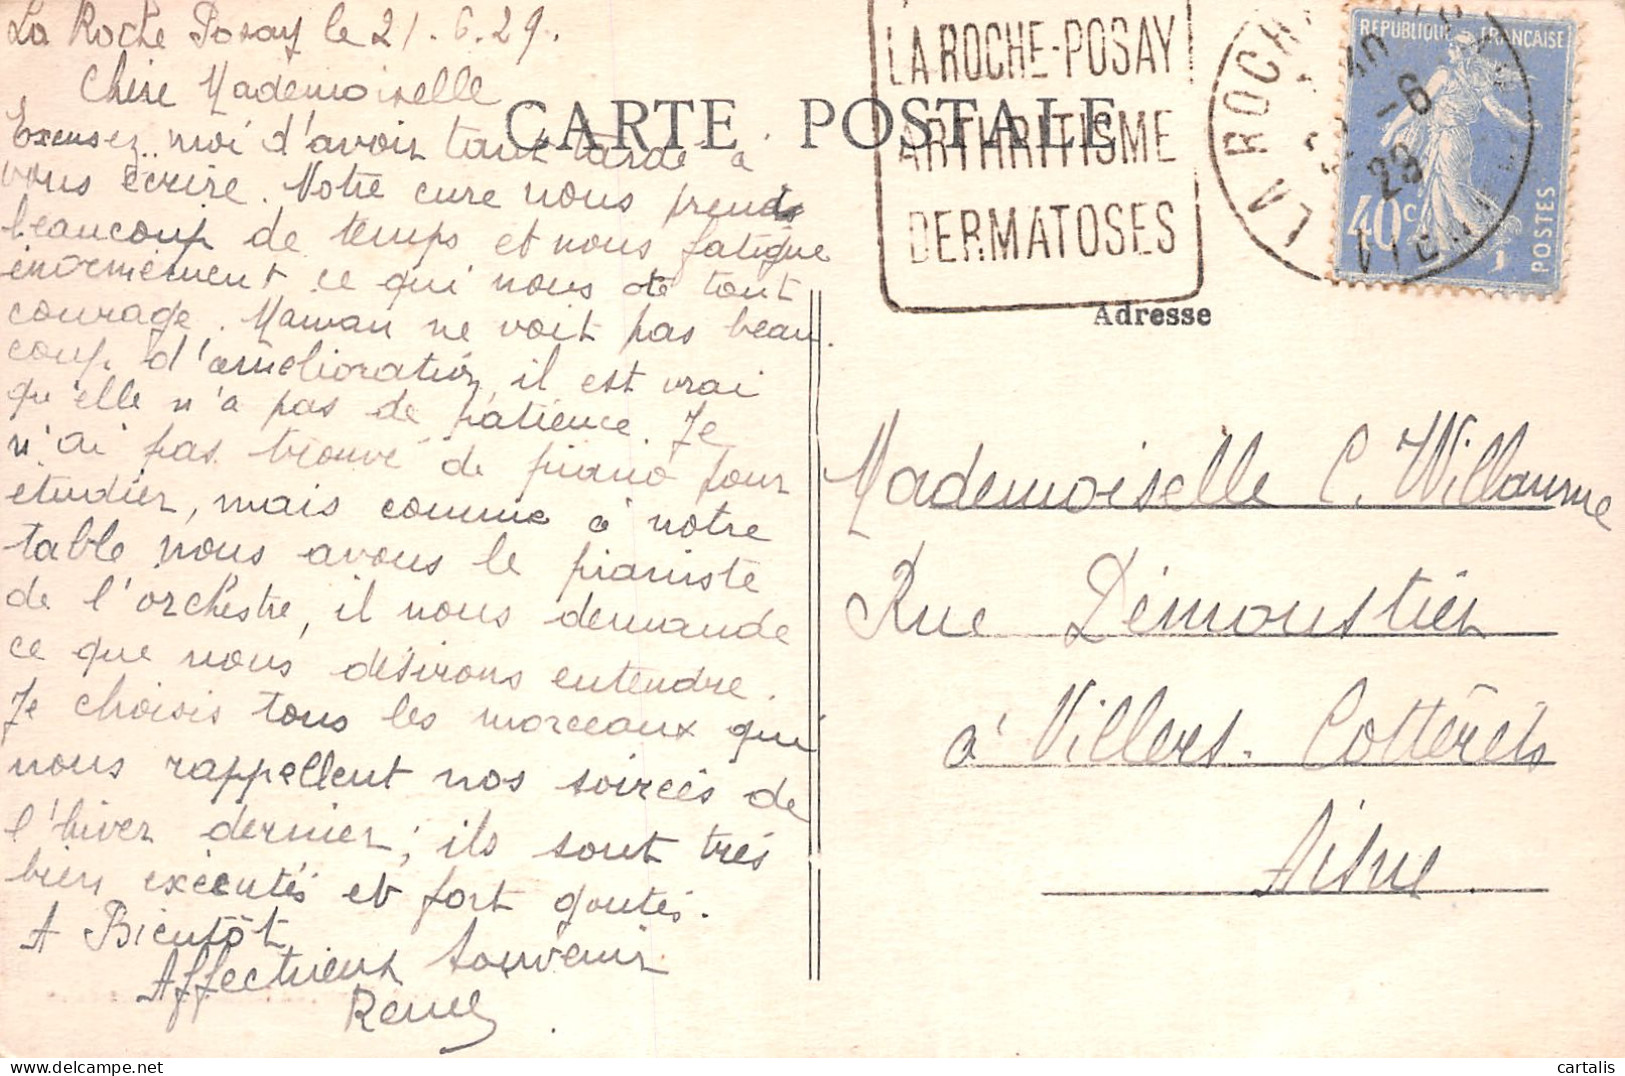 La Roche Posay le 21.6.29.
Chère Mademoiselle
Excusez moi d'avoir tant tardé à
vous écrire. Notre cure nous prend
beaucoup de temps et nous fatigue
énormément ce qui nous ôte tout
courage. Maman ne voit pas beau
coup d'amélioration, il est vrai
qu'elle n'a pas de patience. Je
n'ai pas trouvé de piano pour
étudier, mais comme à notre
table nous avons le pianiste
de l'orchestre, il nous demande
ce que nous désirons entendre.
Je choisis tous les morceaux qui
nous rappellent nos soirées de
l'hiver dernier; ils sont très
bien exécutés et fort goutés.
A Bientôt
Affectueux Souvenir
Renée
CARTE POSTALE
LA ROCHE-POSAY
ARTHRITISME
DERMATOSES
LA ROCH
-6
29
VIENN
REPUBLIQUE FRANÇAISE
40c
POSTES
Adresse
Mademoiselle C. Willaume
Rue Démoustier
à Villers-Cotterêts
Aisne.
cartalis